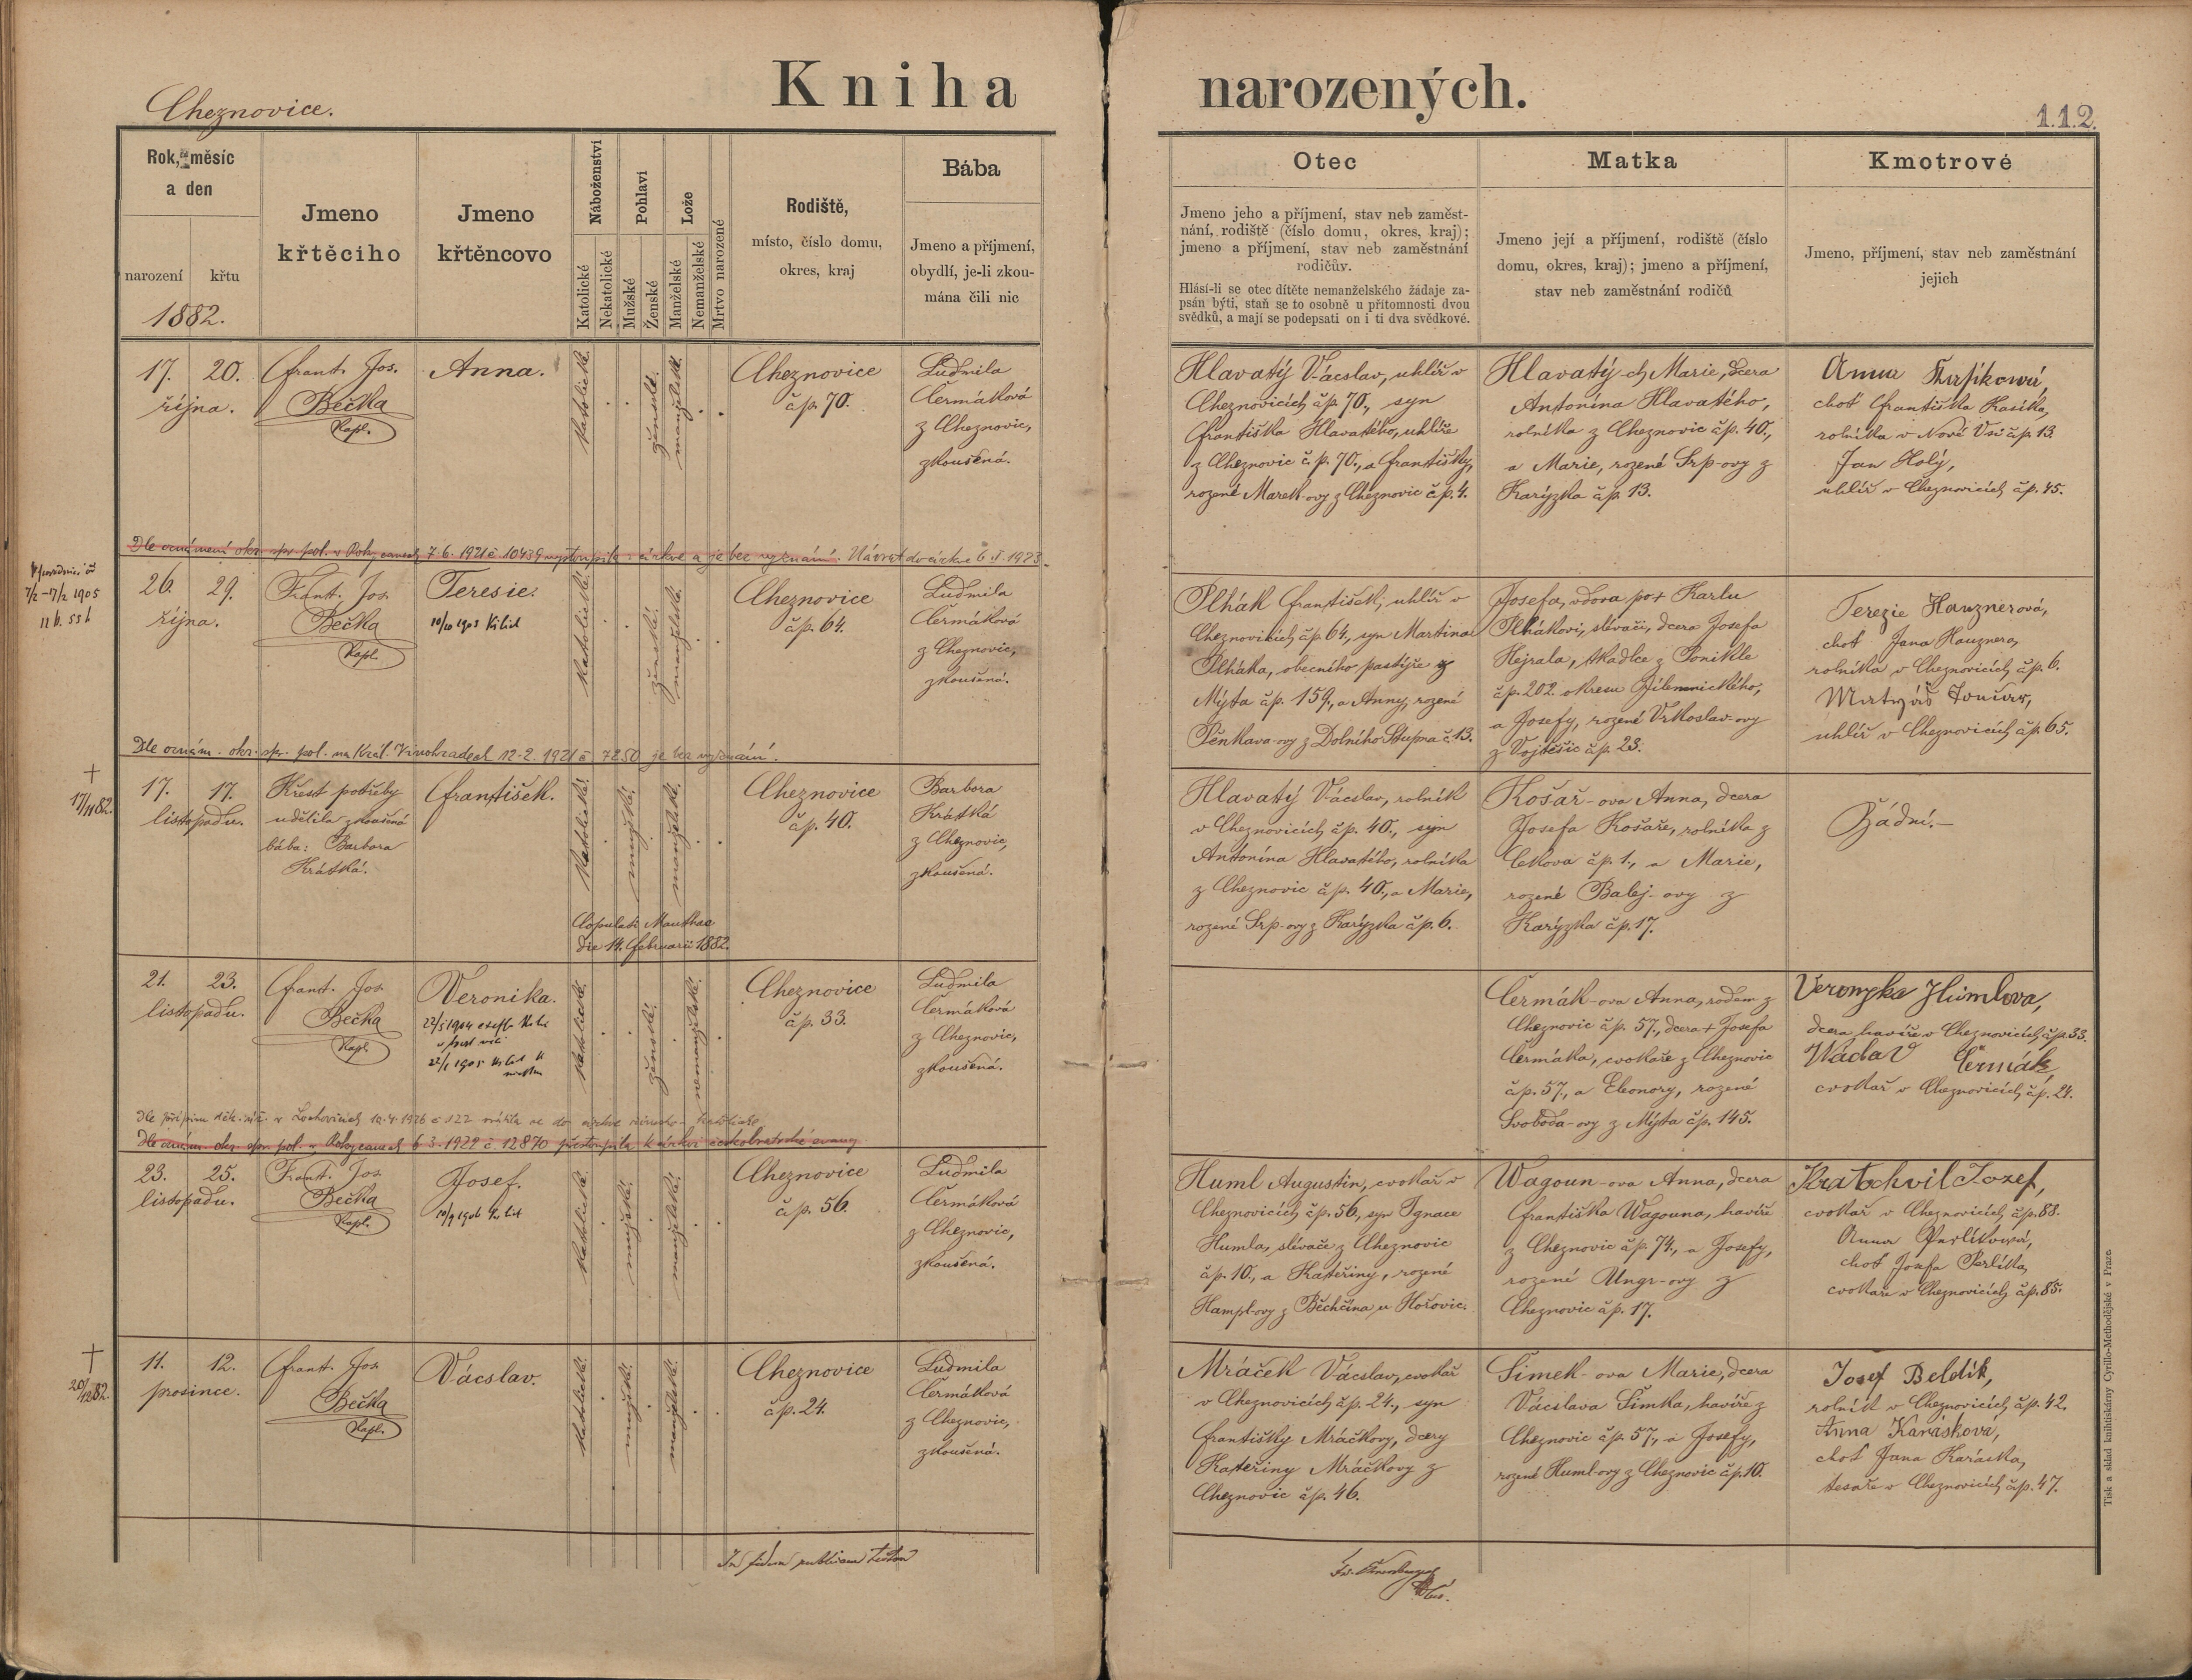 Kniha narozených.
Cheznovice.
1.1.2.
Rok, měsíc
a den
narození
křtu
1882.
Jmeno
křtěcího
Jmeno
křtěncovo
Náboženství
Katolické
Nekatolické
Pohlaví
Mužské
Ženské
Lože
Manželské
Nemanželské
Mrtvo narozené
Rodiště,
místo, číslo domu,
okres, kraj
Bába
Jmeno a příjmení,
obydlí, je-li zkou-
mána čili nic
Otec
Jmeno jeho a příjmení, stav neb zaměst-
nání, rodiště (číslo domu, okres, kraj);
jmeno a příjmení, stav neb zaměstnání
rodičův.
Hlásí-li se otec dítěte nemanželského žádaje za-
psán býti, staň se to osobně u přítomnosti dvou
svědků, a mají se podepsati on i ti dva svědkové.
Matka
Jmeno její a příjmení, rodiště (číslo
domu, okres, kraj); jmeno a příjmení,
stav neb zaměstnání rodičů
Kmotrové
Jmeno, příjmení, stav neb zaměstnání
jejich
17. 20.
října.
Frant. Jos.
Bečka
Kapl.
Anna.
katolické.
ženské.
manželské.
Cheznovice
čp. 70.
Ludmila
Čermáková
z Cheznovic,
zkoušená.
Hlavatý Vácslav, uhlíř v
Cheznovicích čp. 70., syn
Františka Hlavatého, uhlíře
z Cheznovic č. p. 70., a Františky,
rozené Marek-ovy z Cheznovic č.p. 4.
Hlavatý-ch Marie, dcera
Antonína Hlavatého,
rolníka z Cheznovic čp. 40.,
a Marie, rozené Srp-ovy z
Karýzka čp. 13.
Anna
choť Františka Kasíka,
rolníka v Nové Vsi čp. 13.
Jan Holý,
uhlíř v Cheznovicích čp. 45.
Dle oznámení okr. spr. pol. v Rokycanech 7. 6. 1921 č 10439 vystoupila z církve a je bez vyznání. Návrat do církve 6. I. 1923.
7/2 - 17/2 1905
26. 29.
října.
Frant. Jos.
Bečka
Kapl.
Teresie.
10/10 1903
katolické.
ženské.
manželské.
Cheznovice
čp. 64.
Ludmila
Čermáková
z Cheznovic,
zkoušená.
Plhák František, uhlíř v
Cheznovicích čp. 64., syn Martina
Plháka, obecního pastýře z
Mýta čp. 159., a Anny, rozené
Pěnkava-ovy z Dolního Stupna č. 13.
Josefa, vdova po + Karlu
Plhákovi, slévači, dcera Josefa
Hejrala, tkadlce z Ponikle
čp. 202. okresu Jilemnického,
a Josefy, rozené Vrkoslav-ovy
z Vojtěšic čp. 23.
Terezie Hauznerová,
choť Jana Hauznera,
rolníka v Cheznovicích čp. 6.
Matyáš
uhlíř v Cheznovicích čp. 65.
Dle oznám. okr. spr. pol. na Král. Vinohradech 12. 2. 1921 č 7250 je bez vyznání.
†
17/11 82.
17. 17.
listopadu.
Křest potřeby
udělila zkoušená
bába: Barbora
Krátká.
František.
katolické.
mužské.
manželské.
Cheznovice
čp. 40.
Barbora
Krátká
z Cheznovic,
zkoušená.
Copulati Mauthae
die 14. februarii 1882.
Hlavatý Vácslav, rolník
v Cheznovicích čp. 40., syn
Antonína Hlavatého, rolníka
z Cheznovic čp. 40., a Marie,
rozené Srp-ovy z Karýzka čp. 6.
Košař-ova Anna, dcera
Josefa Košaře, rolníka z
Cekova čp. 1., a Marie,
rozené Balej-ovy z
Karýzka čp. 17.
Žádní.—
21. 23.
listopadu.
Frant. Jos.
Bečka
Kapl.
Veronika.
22/5 1904
1905
katolické.
ženské.
nemanželské.
Cheznovice
čp. 33.
Ludmila
Čermáková
z Cheznovic,
zkoušená.
Čermák-ova Anna, rodem z
Cheznovic čp. 57., dcera + Josefa
Čermáka, cvokaře z Cheznovic
čp. 57., a Eleonory, rozené
Svoboda-ovy z Mýta čp. 145.
Veronyka Humlova,
dcera havíře v Cheznovicích čp. 33.
Wáclav Čermák,
cvokař v Cheznovicích čp. 21.
Dle přípisu děk. úř. v Lochovicích 10. 4. 1926 č 122 vrátila se do církve římsko-katolické
Dle oznám. okr. spr. pol. v Rokycanech 6. 3. 1922 č. 12870 přestoupila k církvi českobratrské evang.
23. 25.
listopadu.
Frant. Jos.
Bečka
Kapl.
Josef.
katolické.
mužské.
manželské.
Cheznovice
čp. 56.
Ludmila
Čermáková
z Cheznovic,
zkoušená.
Huml Augustin, cvokař v
Cheznovicích čp. 56., syn Ignace
Humla, slévače z Cheznovic
čp. 10., a Kateřiny, rozené
Hampl-ovy z Běchčína u Hořovic.
Wagoun-ova Anna, dcera
Františka Wagouna, havíře
z Cheznovic čp. 74., a Josefy,
rozené Ungr-ovy z
Cheznovic čp. 17.
Kratochvil Jozef,
cvokař v Cheznovicích čp. 88.
Anna Perlíková,
choť Josefa Perlíka,
cvokaře v Cheznovicích čp. 85.
†
20/12 82.
11. 12.
prosince.
Frant. Jos.
Bečka
Kapl.
Vácslav.
katolické.
mužské.
manželské.
Cheznovice
čp. 24.
Ludmila
Čermáková
z Cheznovic,
zkoušená.
Mráček Vácslav, cvokař
v Cheznovicích čp. 24., syn
Františky Mráčkovy, dcery
Kateřiny Mráčkovy z
Cheznovic čp. 46.
Šimek-ova Marie, dcera
Vácslava Šimka, havíře z
Cheznovic čp. 57., a Josefy,
rozené Huml-ovy z Cheznovic čp. 10.
Josef Beldík,
rolník v Cheznovicích čp. 42.
Anna Karásková,
choť Jana Karáska,
tesaře v Cheznovicích čp. 47.
In fidem publicam testor
Tisk a sklad knihtiskárny Cyrillo-Methodějské v Praze.